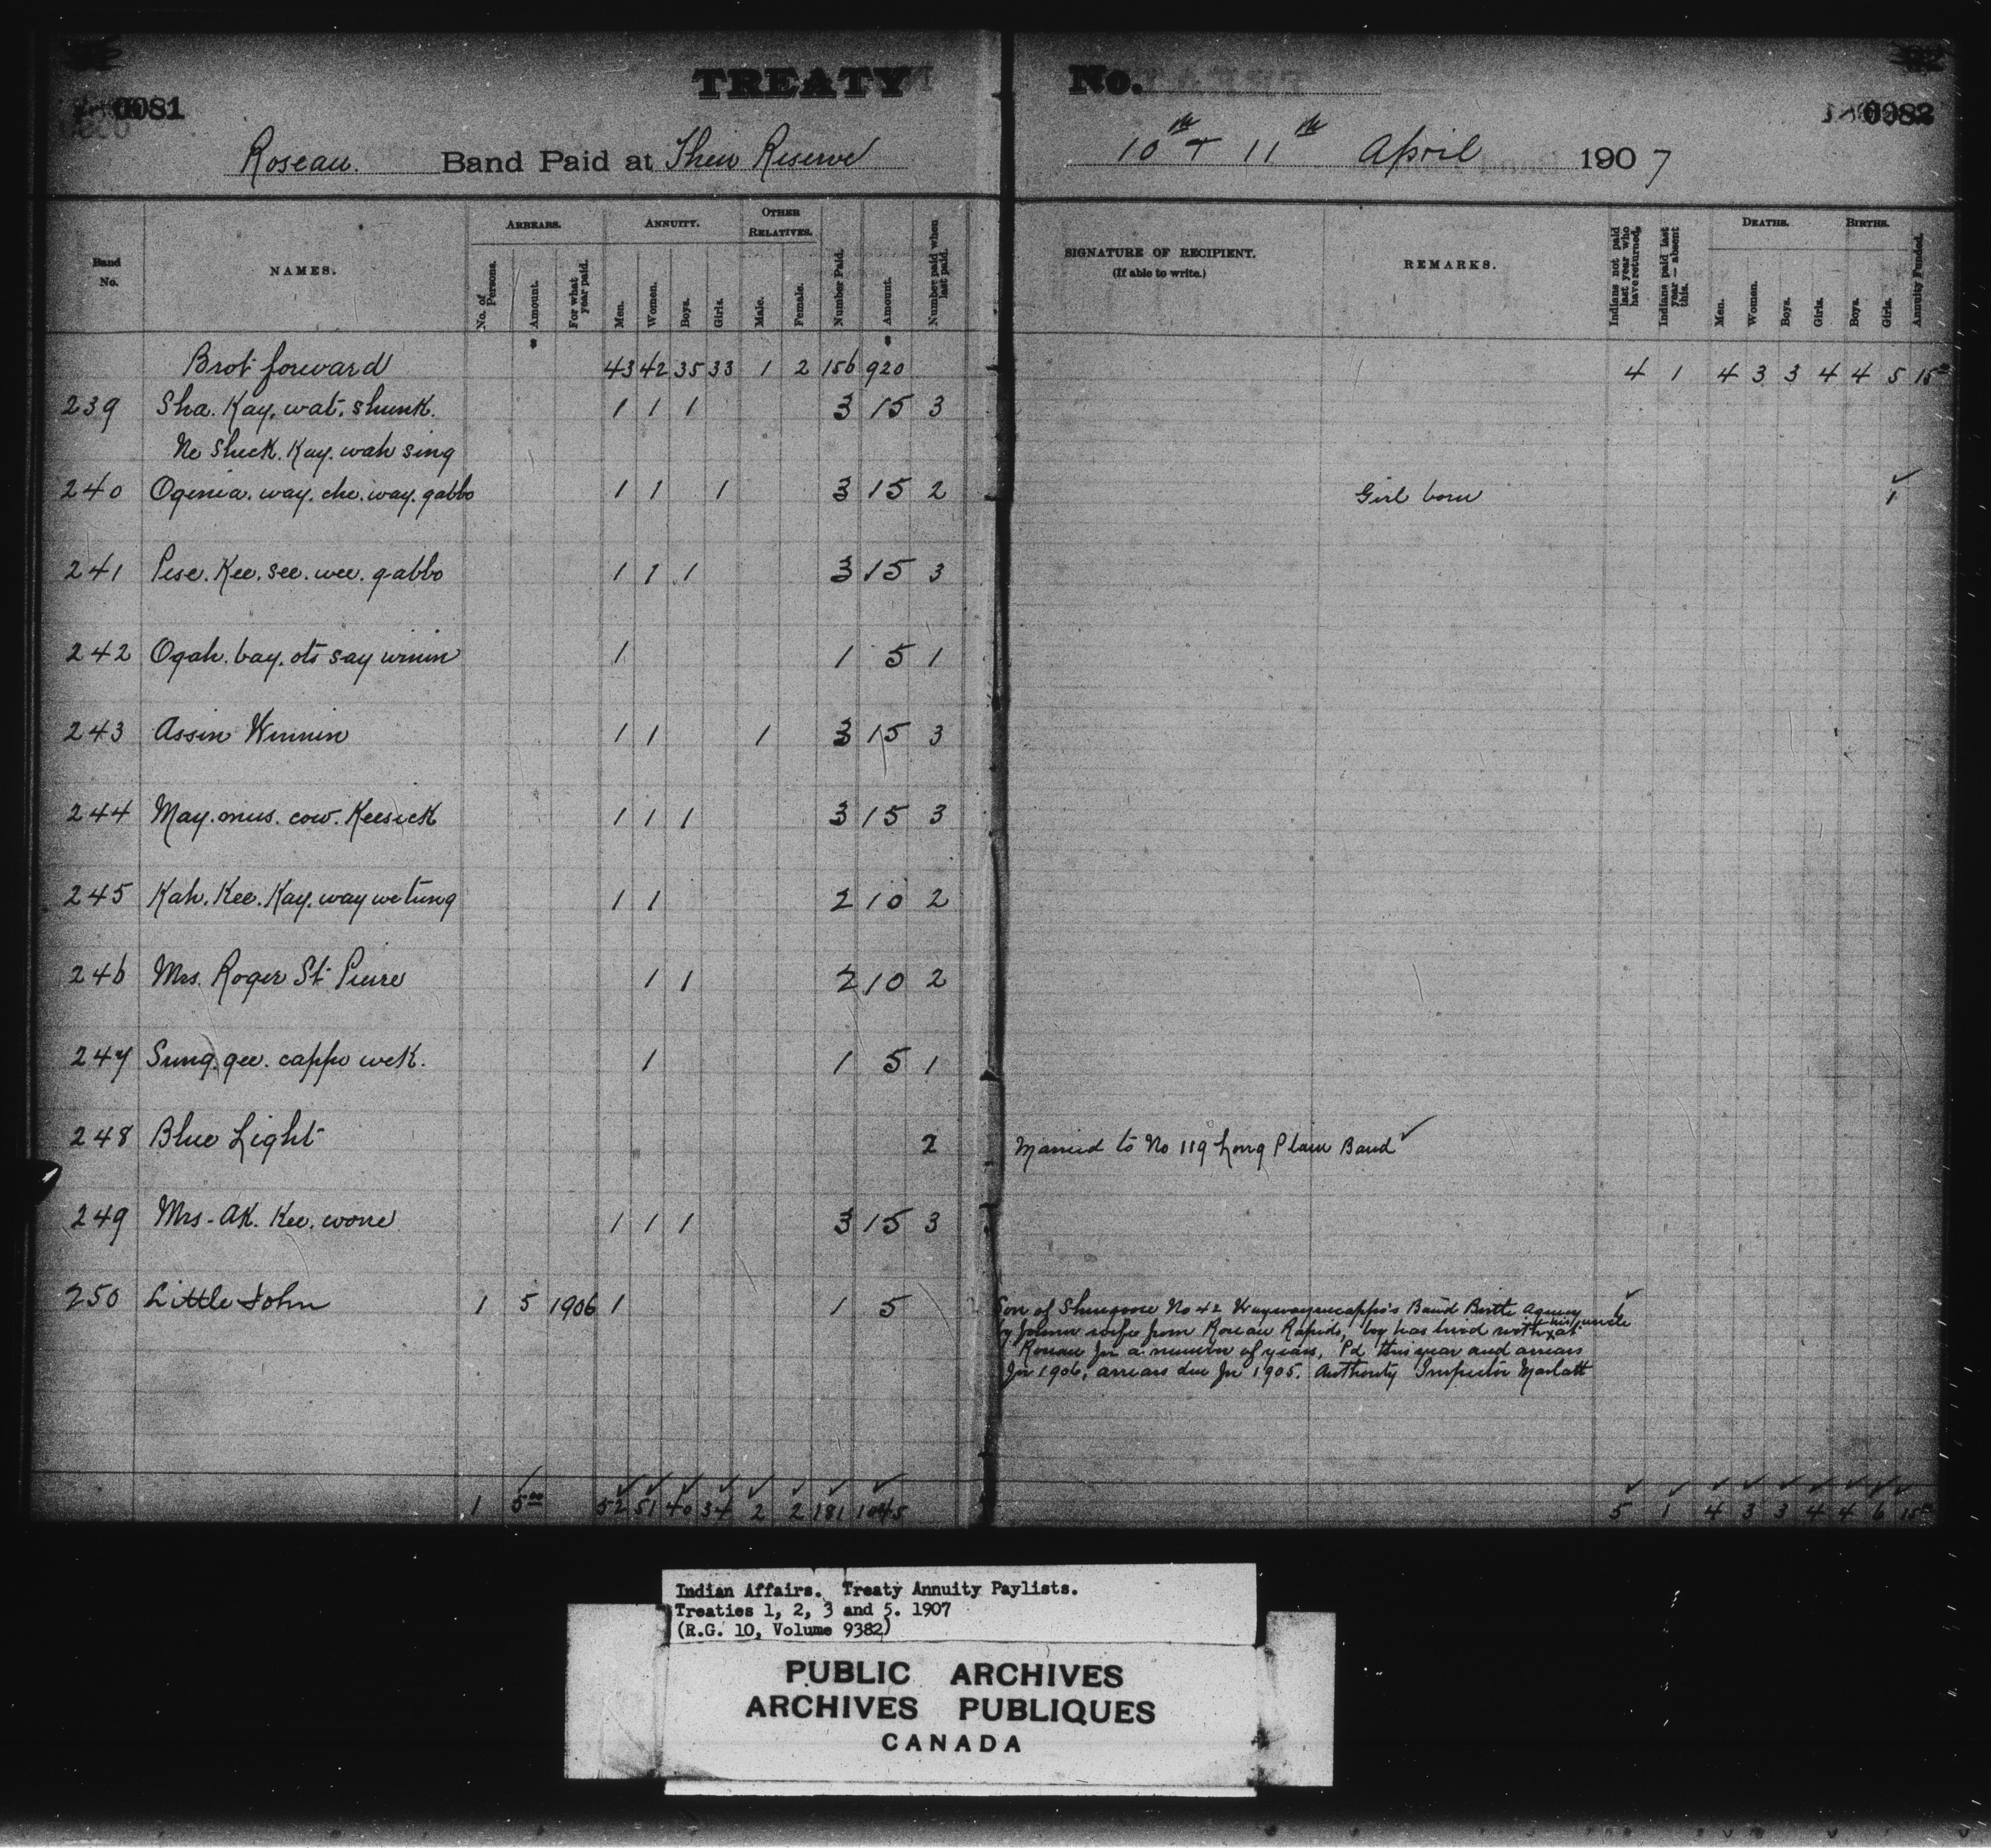 TREATY No.
0081
0082
Roseau. Band Paid at Their Reserve
10th + 11th April 1907
Band No.
NAMES.
ARREARS.
No. of Persons.
Amount.
For what year paid.
ANNUITY.
Men.
Women.
Boys.
Girls.
OTHER RELATIVES.
Male.
Female.
Number Paid.
Amount.
Number paid when last paid.
SIGNATURE OF RECIPIENT.
(If able to write.)
REMARKS.
Indians not paid last year who have returned.
Indians paid last year — absent this.
DEATHS.
Men.
Women.
Boys.
Girls.
BIRTHS.
Boys.
Girls.
Annuity Funded.
Brot forward 43 42 35 33 1 2 156 920 4 1 4 3 3 4 4 5 15
239 Sha. Kay. wat. shunk. 1 1 1 3 15 3
Ne Sheck. Kay. wah sing
240 Ogema. way. che. way. gabbo 1 1 1 3 15 2 Girl born 1
241 Pese. Kee. see. wee. gabbo 1 1 1 3 15 3
242 Ogah. bay. ots say winin 1 1 5 1
243 Assin Winnin 1 1 1 3 15 3
244 May. mus. cow. Keesick 1 1 1 3 15 3
245 Kah. Kee. Kay. way we tung 1 1 2 10 2
246 Mrs. Roger St. Pierre 1 1 2 10 2
247 Sung. gee. cappo wek. 1 1 5 1
248 Blue Light 2 Married to No 119 Long Plain Band
249 Mrs - AK. Kee. wone 1 1 1 3 15 3
250 Little John 1 5 1906 1 1 5 1
Son of Shingoose No 42 Waywayseecappo's Band Birtle Agency
by former wife from Roseau Rapids, boy has lived with his uncle at
Roseau for a number of years, Pd this year and arrears
for 1906, arrears due for 1905. Authority Inspector Marlatt
1 5.00 52 51 40 34 2 2 181 1045 5 1 4 3 3 4 4 6 15
Indian Affairs. Treaty Annuity Paylists.
Treaties 1, 2, 3 and 5. 1907
(R.G. 10, Volume 9382)
PUBLIC ARCHIVES
ARCHIVES PUBLIQUES
CANADA